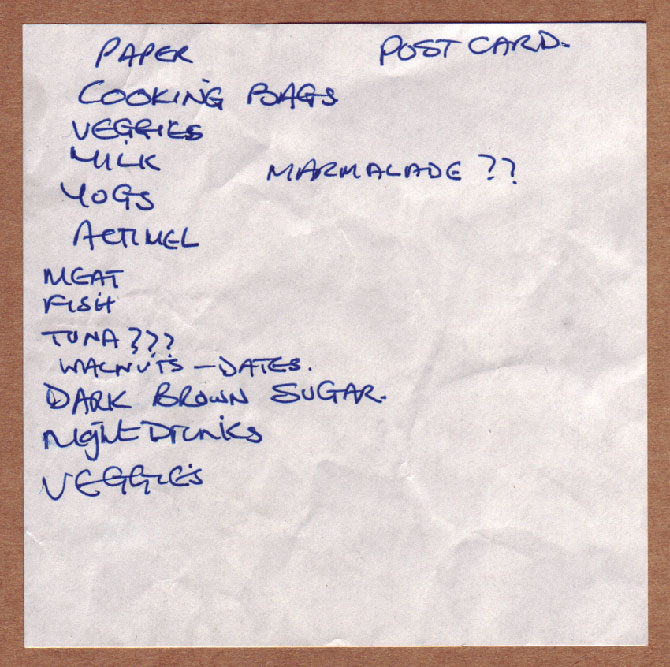 PAPER
POST CARD.
COOKING BAGS
VEGGIES
MILK
MARMALADE ??
YOGS
ACTIMEL
MEAT
FISH
TUNA???
WALNUTS – DATES.
DARK BROWN SUGAR.
Night Drinks
VEGGIES